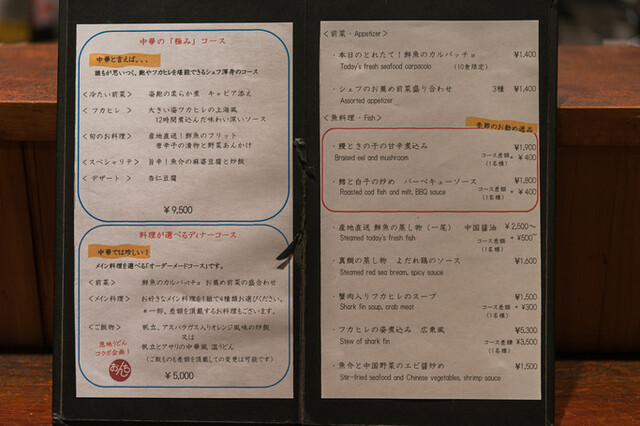 中華の「極み」コース
中華と言えば、、、
誰もが思いつく、鮑やフカヒレを堪能できるシェフ渾身のコース
<冷たい前菜> 姿鮑の柔らか煮 キャビア添え
<フカヒレ> 大きい姿フカヒレの上海風
12時間煮込んだ味わい深いソース
<旬のお料理> 産地直送!鮮魚のフリット
青辛子の漬物と野菜あんかけ
<スペシャリテ> 旨辛!魚介の麻婆豆腐と炒飯
<デザート> 杏仁豆腐
¥9,500
料理が選べるディナーコース
中華では珍しい!
メイン料理を選べる「オーダーメードコース」です。
<前菜> 鮮魚のカルパッチョ お薦め前菜の盛合わせ
<メイン料理> お好きなメイン料理を1組で4種類お選びください。
*一部、差額を頂戴するお料理もございます。
<ご飯物> 帆立、アスパラガス入りオレンジ風味の炒飯
又は
帆立とアサリの中華風 温うどん
(ご飯ものも差額を頂戴しての変更は可能です)
恩地うどん
コラボ企画!
おんぢ
¥5,000
<前菜・Appetizer>
・本日のとれたて!鮮魚のカルパッチョ ¥1,400
Today's fresh seafood carpaccio (10食限定)
・シェフのお薦め前菜盛り合わせ 3種 ¥1,400
Assorted appetizer
<魚料理・Fish>
季節のお勧め逸品
・鰻ときの子の甘辛煮込み ¥1,900
Braised eel and mushroom コース差額 + ¥400
(1名様)
・鱈と白子の炒め バーベキューソース ¥1,800
Roasted cod fish and milt, BBQ sauce コース差額 + ¥400
(1名様)
・産地直送 鮮魚の蒸し物 (一尾) 中国醤油 ¥2,500~
Steamed today's fresh fish コース差額 + ¥500~
(1名様)
・真鯛の蒸し物 よだれ鶏のソース ¥1,600
Steamed red sea bream, spicy sauce
・蟹肉入りフカヒレのスープ ¥1,500
Shark fin soup, crab meat コース差額 + ¥300
(1名様)
・フカヒレの姿煮込み 広東風 ¥5,300
Stew of shark fin コース差額 ¥3,500
(1名様)
・魚介と中国野菜のエビ醤炒め ¥1,500
Stir-fried seafood and Chinese vegetables, shrimp sauce